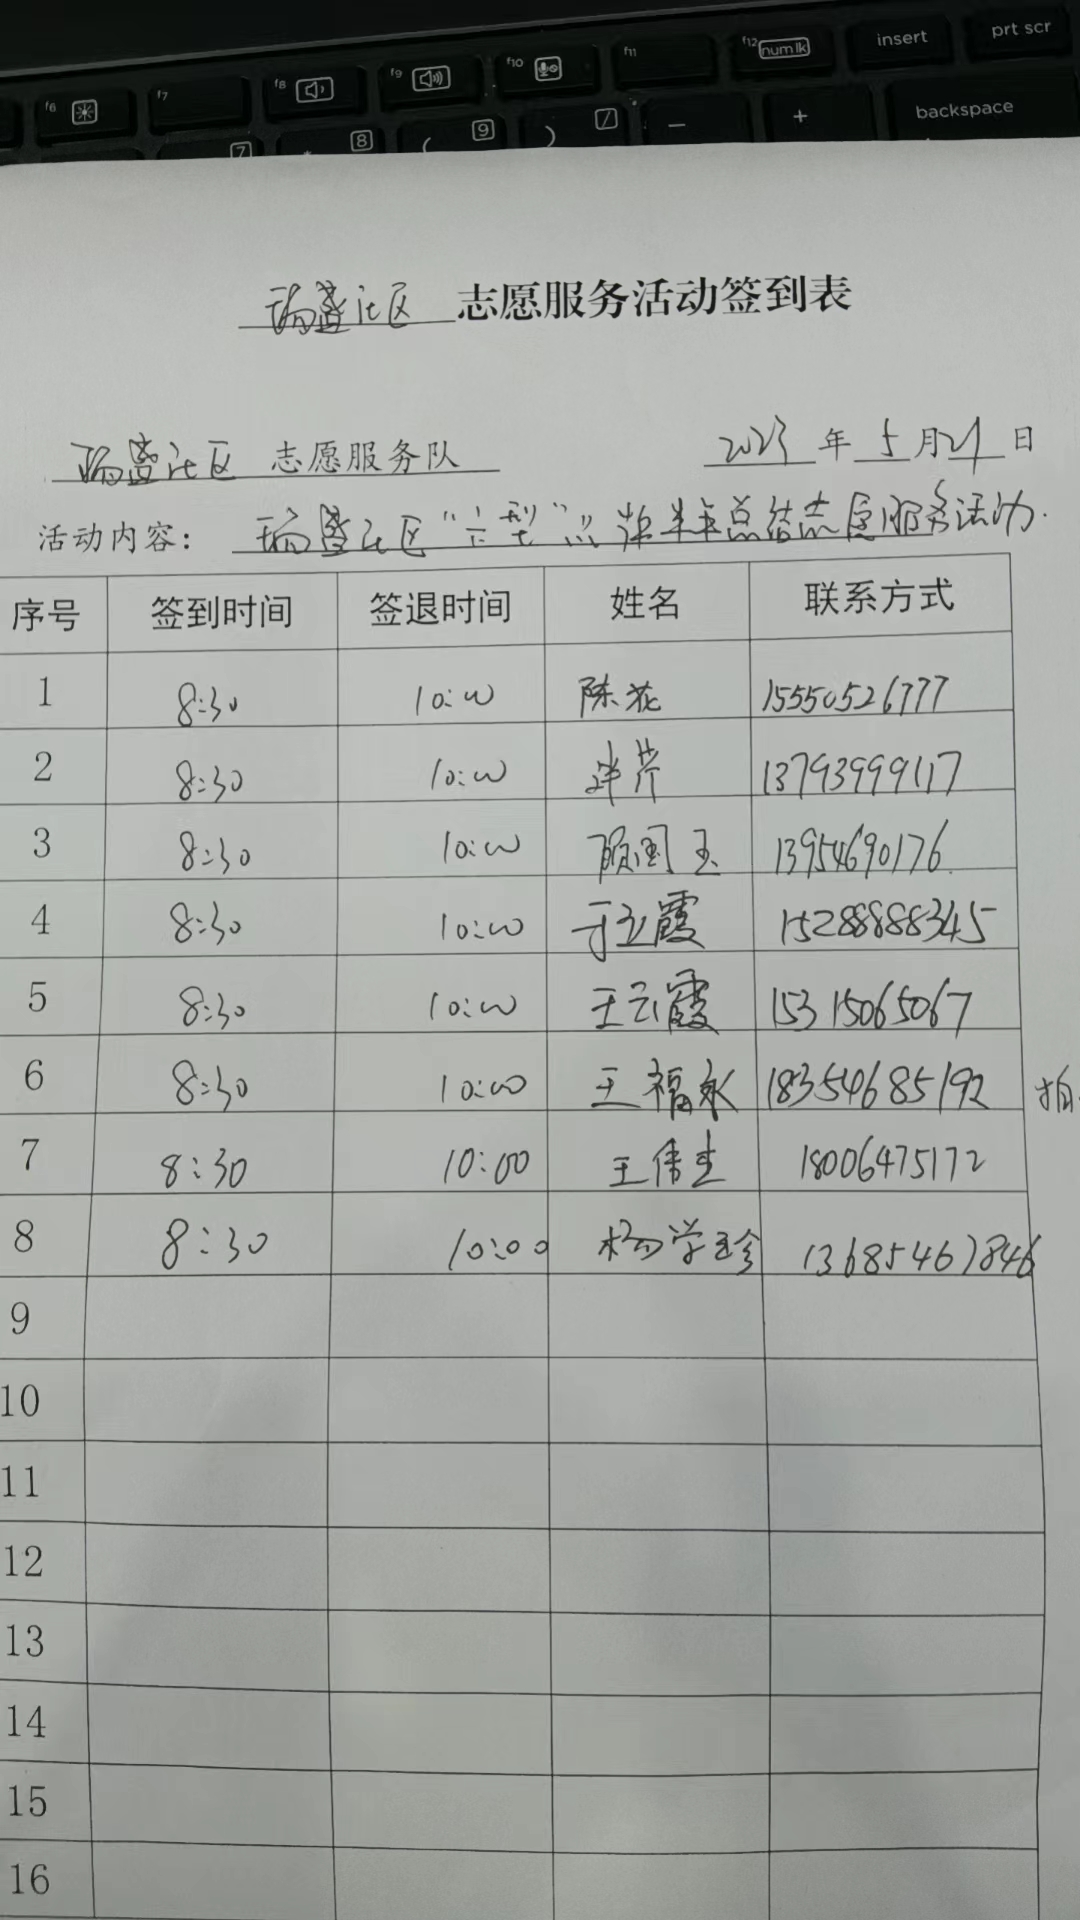 f6 f7 f8 f9 f10 f11 f12 num lk insert prt scr
7 * 8 ( 9 ) / - + backspace
瑞盛社区 志愿服务活动签到表
瑞盛社区 志愿服务队 2023 年 5 月 21 日
活动内容: 瑞盛社区"六型" 半年总结志愿服务活动.
序号 签到时间 签退时间 姓名 联系方式
1 8:30 10:00 陈花 15550526777
2 8:30 10:00 芹 13793999117
3 8:30 10:00 顾国玉 13954690176
4 8:30 10:00 于立霞 15288888345
5 8:30 10:00 王云霞 15315065067
6 8:30 10:00 王福永 18354685192
7 8:30 10:00 王 18006475172
8 8:30 10:00 杨学珍 13685467846
9
10
11
12
13
14
15
16